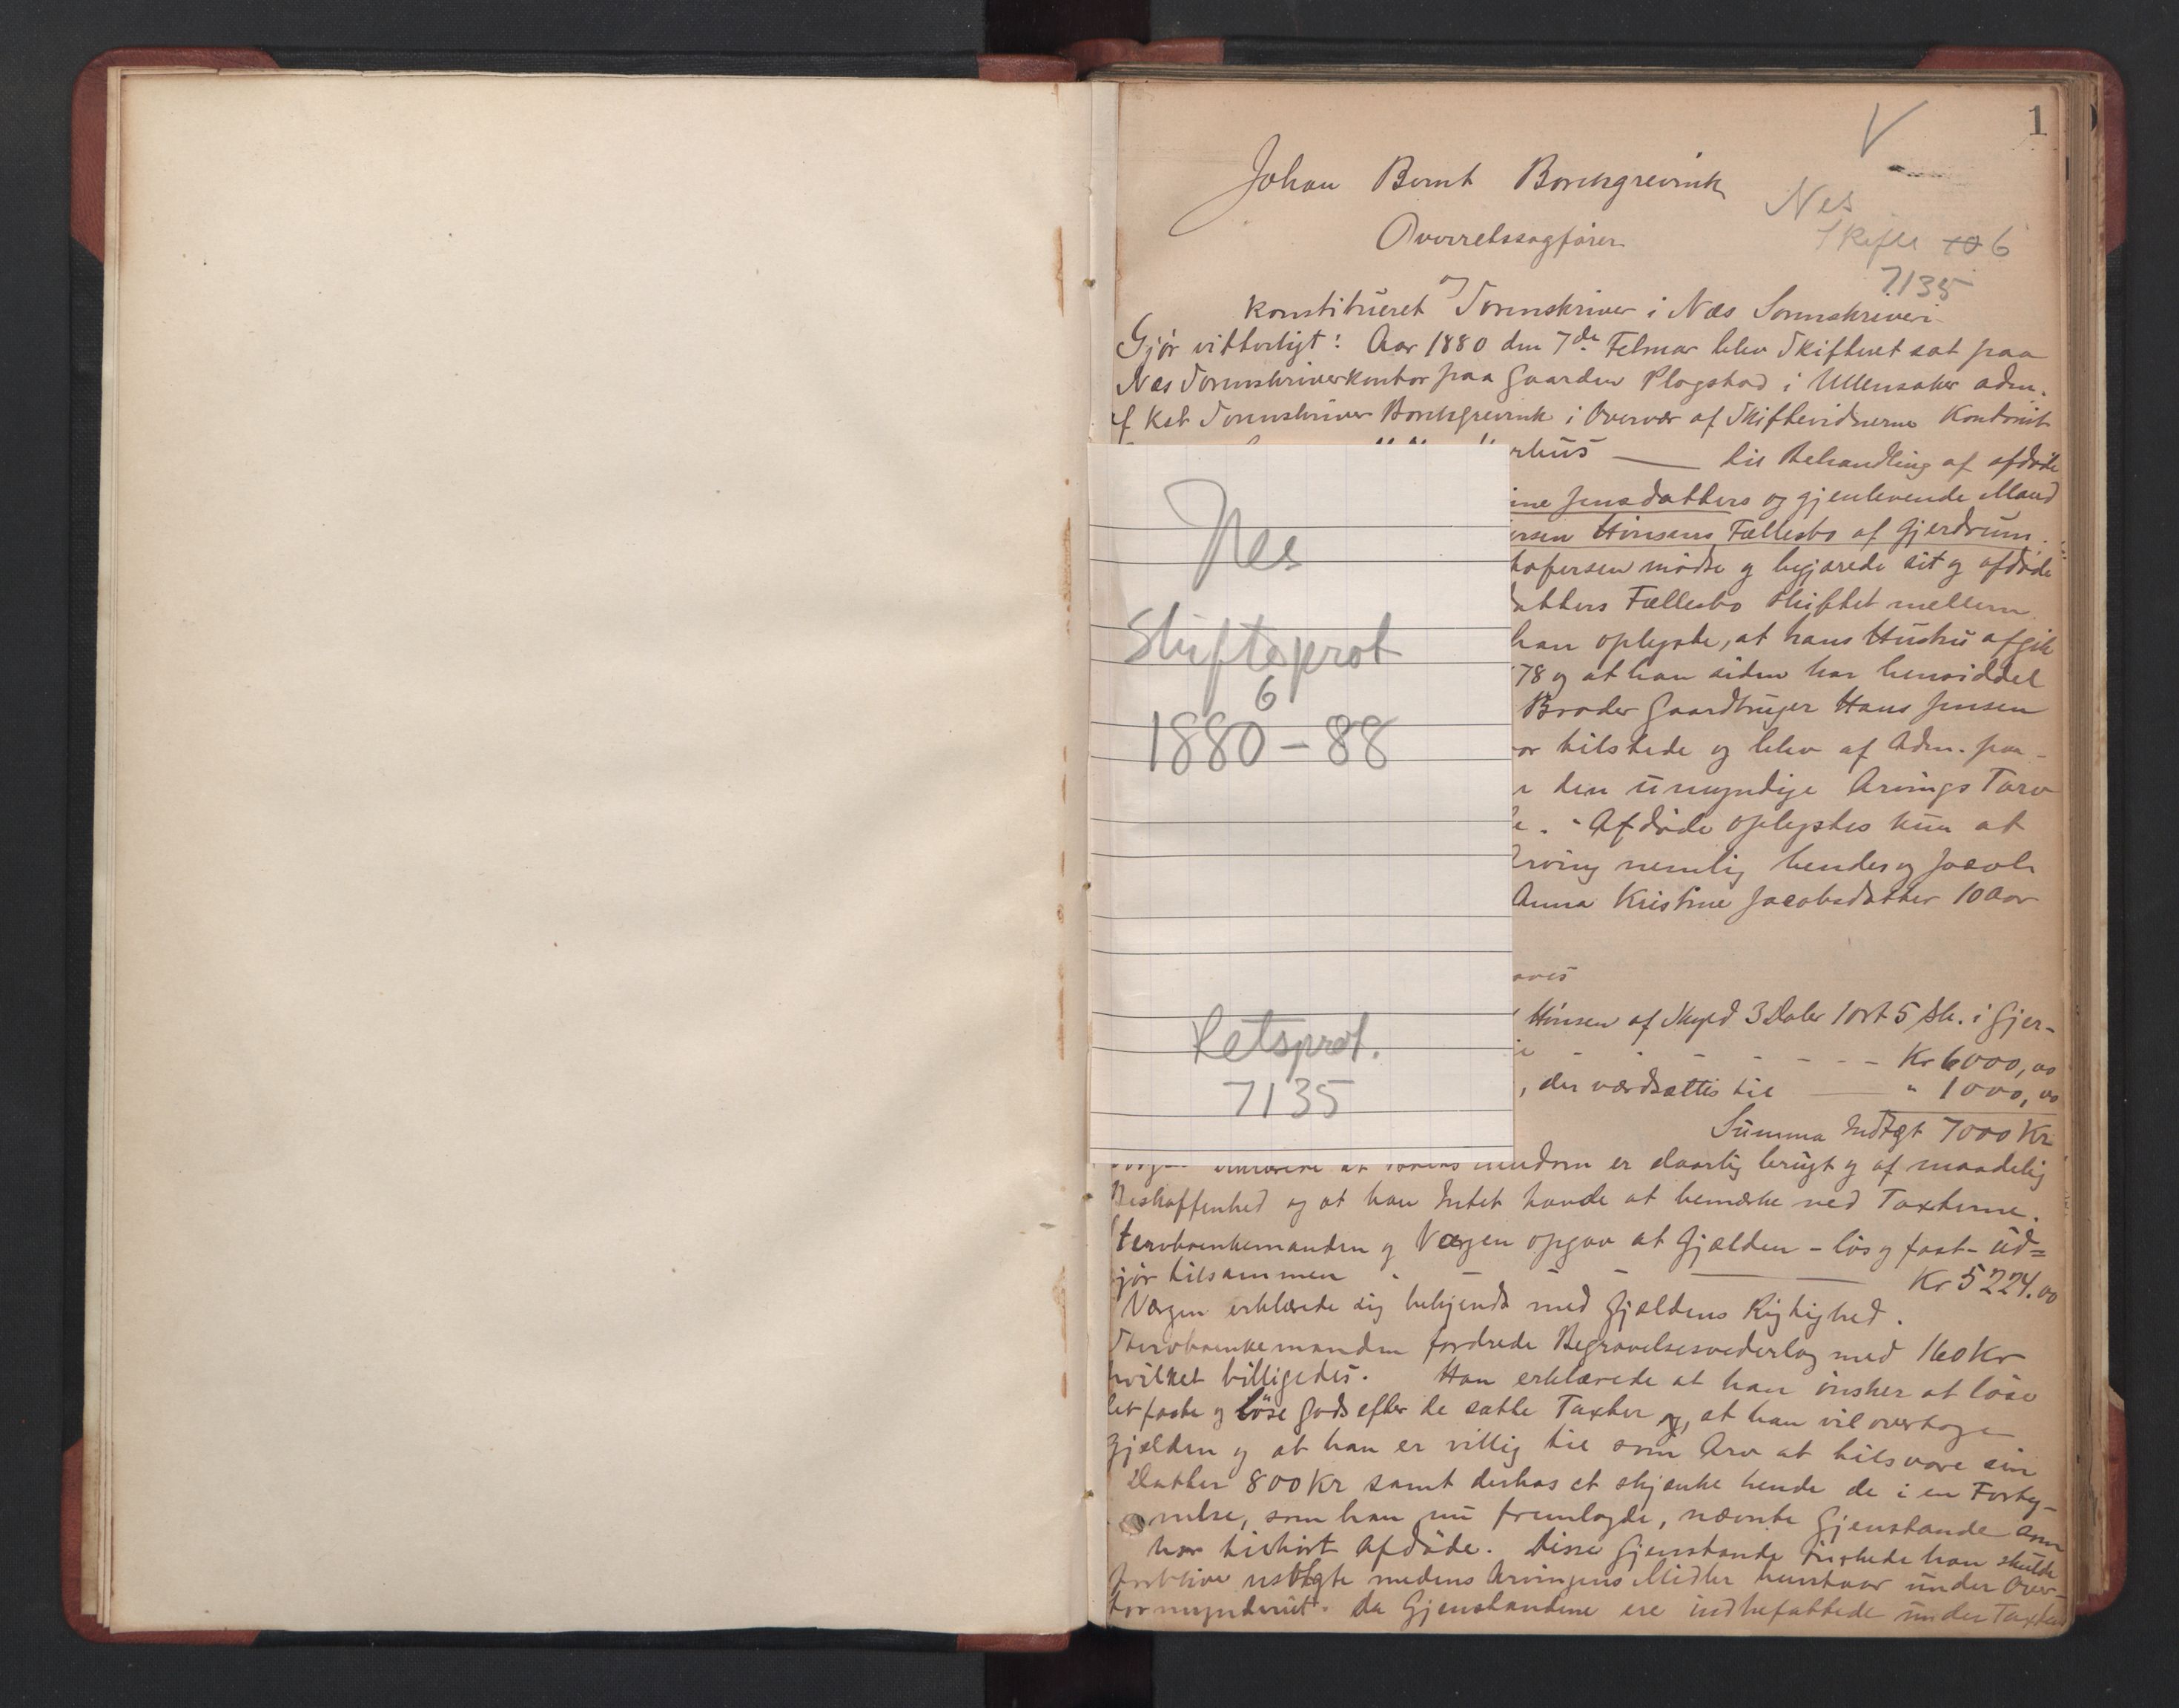 1
V
Johan Bernt Borchgrevink
Nes
Overretssagfører
Skifte 10 6
7135
og
konstitueret Sorenskriver i Næs Sorenskriveri
Gjør vitterligt: Aar 1880 den 7de Februar blev Skifteret sat paa
Næs Sorenskriverkontor paa Gaarden Plogstad i Ullensaker adm.
af Kst Sorenskriver Borchgrevink i Overvær af Skiftevidnerne Kontorist
rhus — til Behandling af afdøde
ine Jensdatters og gjenlevende Mand
ersen Hinsens Fællesbo af Gjerdrum.
tofersen mødte og begjærede sit og afdøde
datters Fællesbo skiftet mellem
han oplyste, at hans Hustru afgik
78 og at han siden har hensiddet
Broder Gaardbruger Hans Jensen
ar tilstede og blev af Adm. paa-
den umyndige Arvings Tarv
Afdøde oplystes kun at
Arving nemlig hendes og Jacob
Anna Kristine Jacobsdatter 10 Aar
Hinsen af Skyld 3 Daler 1 ort 5 Sk. i Gjer-
Kr 6000,00
, der værdsættes til — " 1000,00
Summa Indtægt 7000 Kr
er daarlig brugt og af maadelig
Beskaffenhed og at han Intet havde at bemærke ved Taxterne.
Stervboenkemanden og Værgen opgav at Gjælden - løs og fast - ud=
gjør tilsammen — Kr 5224.00
Værgen erklærede sig bekjendt med Gjældens Rigtighed.
Stervboenkemanden fordrede Begravelsesvederlag med 160 Kr
hvilket billigedes. Han erklærede at han ønsker at løse
det faste og løse Gods efter de satte Taxter og, at han vil overtage
Gjælden og at han er villig til som Arv at tilsvare sin
Datter 800 Kr samt derhos at skjænke hende de i en Forteg-
nelse, som han nu fremlagde, nævnte Gjenstande som
har tilhørt Afdøde. Disse Gjenstande ønskede han skulde
forblive usolgte medens Arvingens Midler henstaar under Over-
formynderiet. Da Gjenstandene ere indbefattede under Taxten
Nes
Skifteprot
6
1880-88
Retsprot.
7135